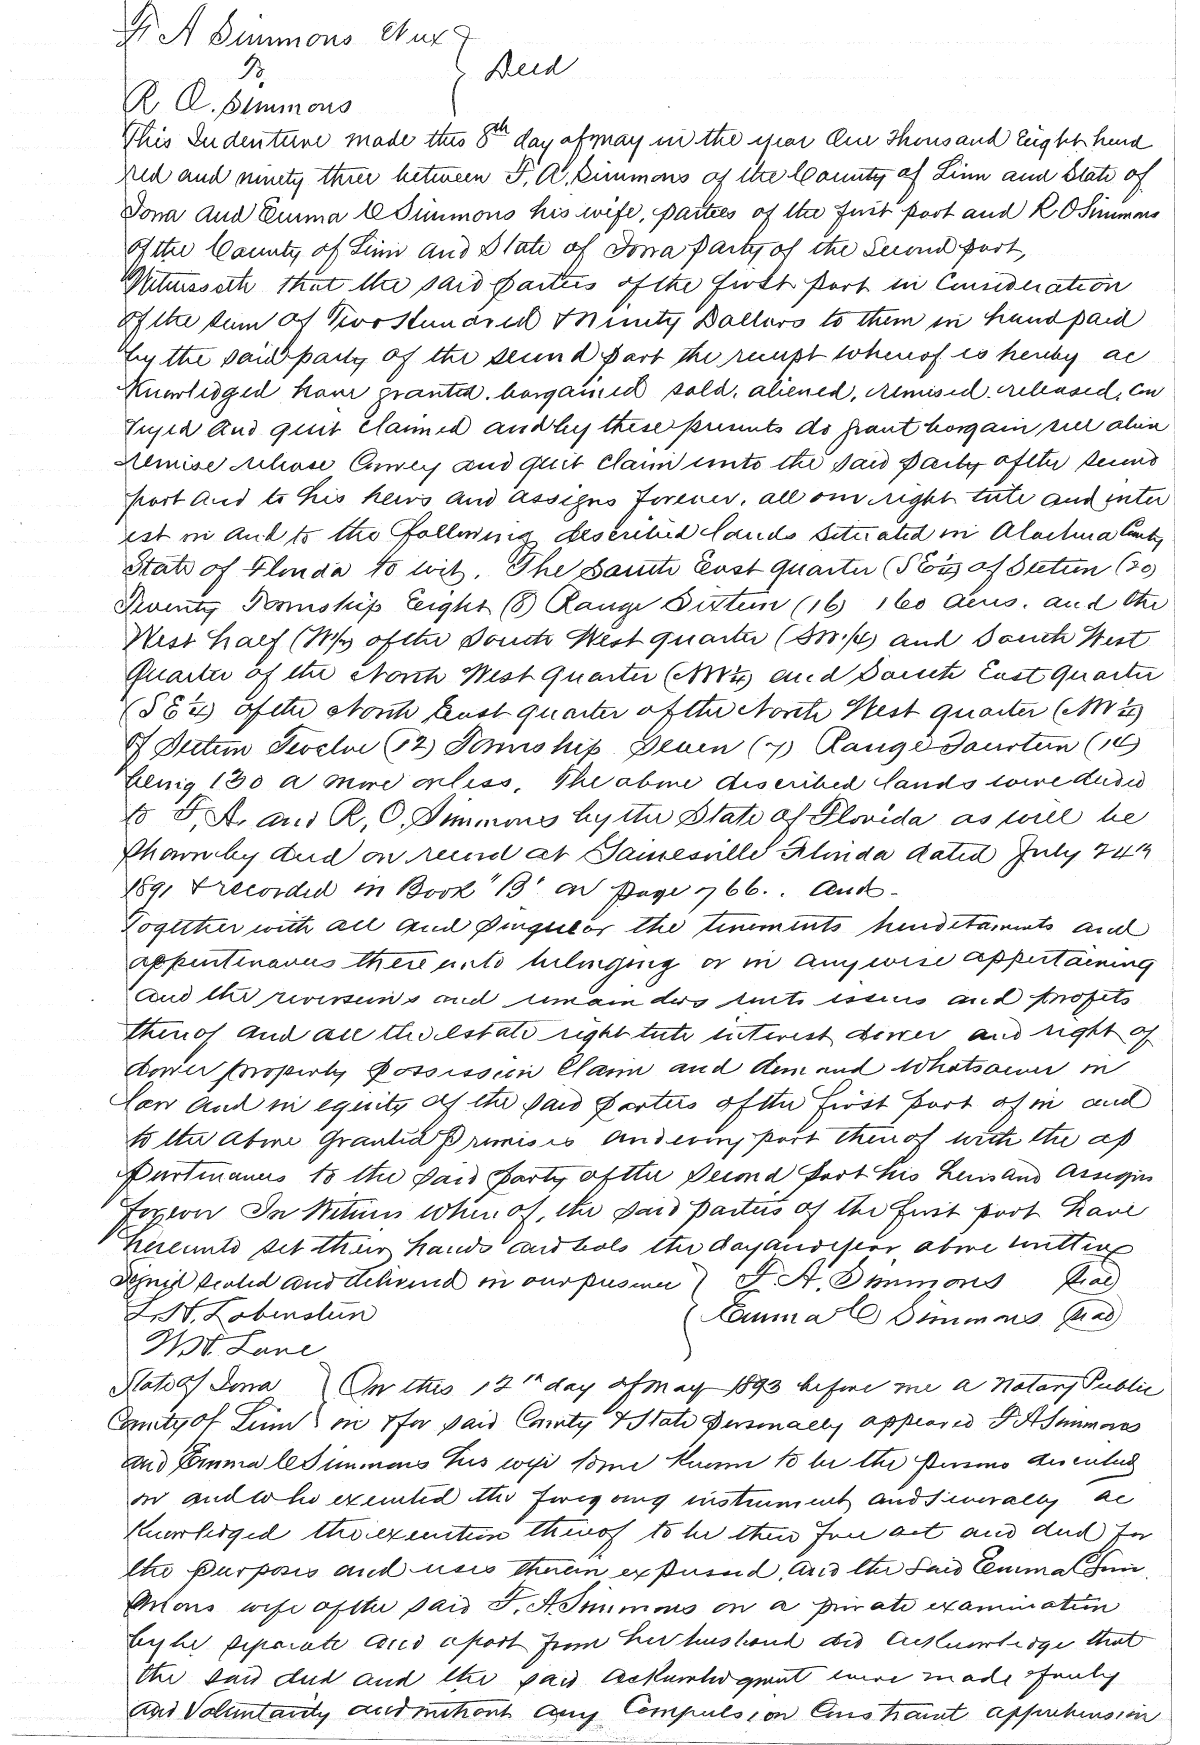 F. A Simmons et ux
To } Deed
R O. Simmons
This Indenture made this 8th day of May in the year One Thousand Eight hund
red and ninety three between F. A. Simmons of the County of Linn and State of
Iowa and Emma C Simmons his wife, parties of the first part and R O Simmons
of the County of Linn and State of Iowa party of the Second part,
Witnesseth that the said parties of the first part in Consideration
of the sum of Two Hundred & Ninety Dollars to them in hand paid
by the said party of the second part the receipt whereof is hereby ac
knowledged have granted. bargained sold. aliened, remised. released, con
veyed and quit claimed and by these presents do grant bargain sell alien
remise release Convey and quit claim unto the said party of the second
part and to his heirs and assigns forever. all our right title and inter
est in and to the following described lands situated in Alachua County
State of Florida to wit. The South East quarter (SE¼) of Section (20)
Twenty Township Eight (8) Range Sixteen (16) 160 acres. and the
West half (W½) of the South West quarter (SW.¼) and South West
Quarter of the North West Quarter (NW¼) and South East Quarter
(SE¼) of the North East quarter of the North West quarter (NW¼)
of Section Twelve (12) Township Seven (7) Range Fourteen (14)
being 130 a more or less. The above described lands were deeded
to F. A. and R. O. Simmons by the State of Florida as will be
shown by deed on record at Gainesville Florida dated July 24th
1891 & recorded in Book "B" on page 766. . and -
Together with all and singular the tenements hereditaments and
appurtenances thereunto belonging or in anywise appertaining
and the reversions and remainders rents issues and profits
thereof and all the estate right title interest dower and right of
dower property possession Claim and demand whatsoever in
law and in equity of the said parties of the first part of in and
to the above granted premises and every part thereof with the ap
purtenances to the said party of the second part his heirs and assigns
forever In Witness whereof, the said parties of the first part have
hereunto set their hands and seals the day and year above written
Signed sealed and delivered in our presence } F. A. Simmons Seal
L. N. Lobenstein Emma C Simmons Seal
W H. Lane
State of Iowa } On this 12th day of May 1893 before me a Notary Public
County of Linn } in & for said County & State personally appeared F A Simmons
and Emma C Simmons his wife to me known to be the persons described
in and who executed the foregoing instrument and severally ac
knowledged the execution thereof to be their free act and deed for
the purposes and uses therein expressed, and the said Emma C Sim
mons wife of the said F. A. Simmons on a private examination
by me separate and apart from her husband did acknowledge that
the said deed and the said acknowledgment were made freely
and Voluntarily and without any Compulsion Constraint apprehension